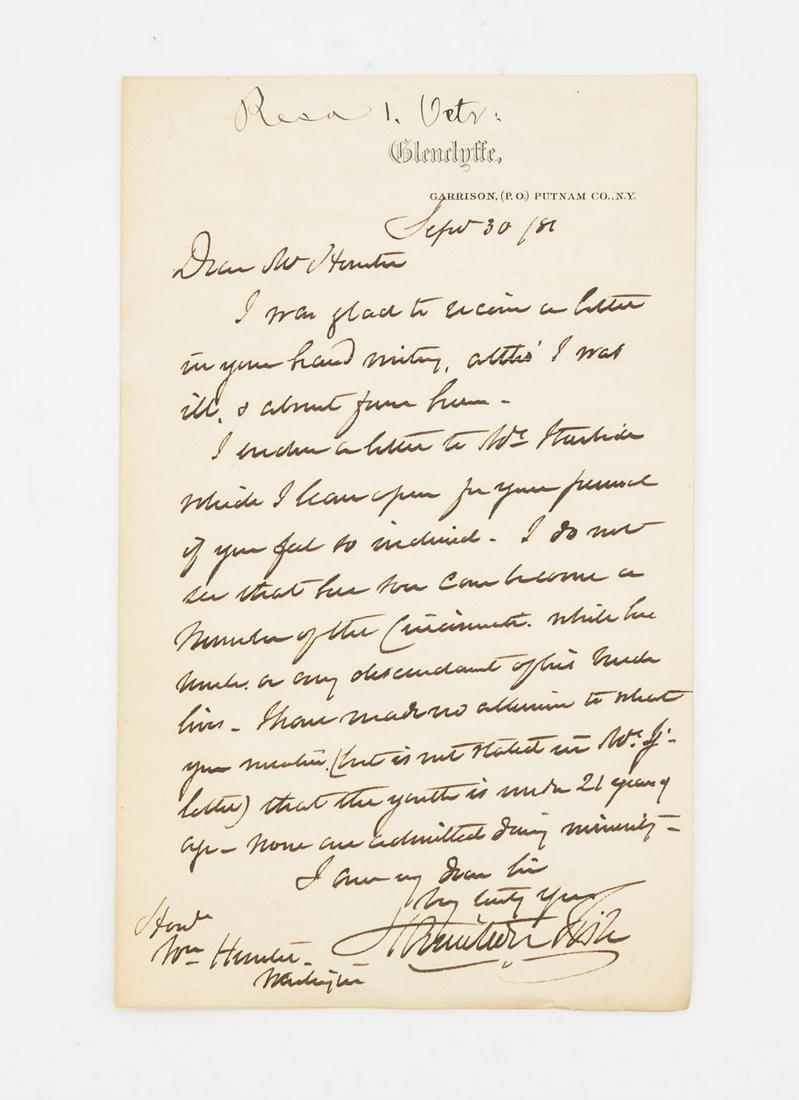 Recd 1. Octr:
Glenclyffe,
GARRISON, (P.O.) PUTNAM CO., N.Y.
Sept 30 /81
Dear Mr Hunter
I was glad to receive a letter
in your hand writing, altho' I was
ill, & absent from home -
I enclose a letter to Mrs
which I leave open for your perusal
if you feel so inclined - I do not
see that her son can become a
Member of the Cincinnati. while his
uncle. or any descendant of his Uncle
lives - I have made no allusion to what
you mention. (but is not stated in Mrs G's
letter) that the youth is under 21 years of
age - None are admitted during minority -
I am my dear Sir
Very truly Yours
Hamilton Fish
Honle
Wm Hunter -
Washington